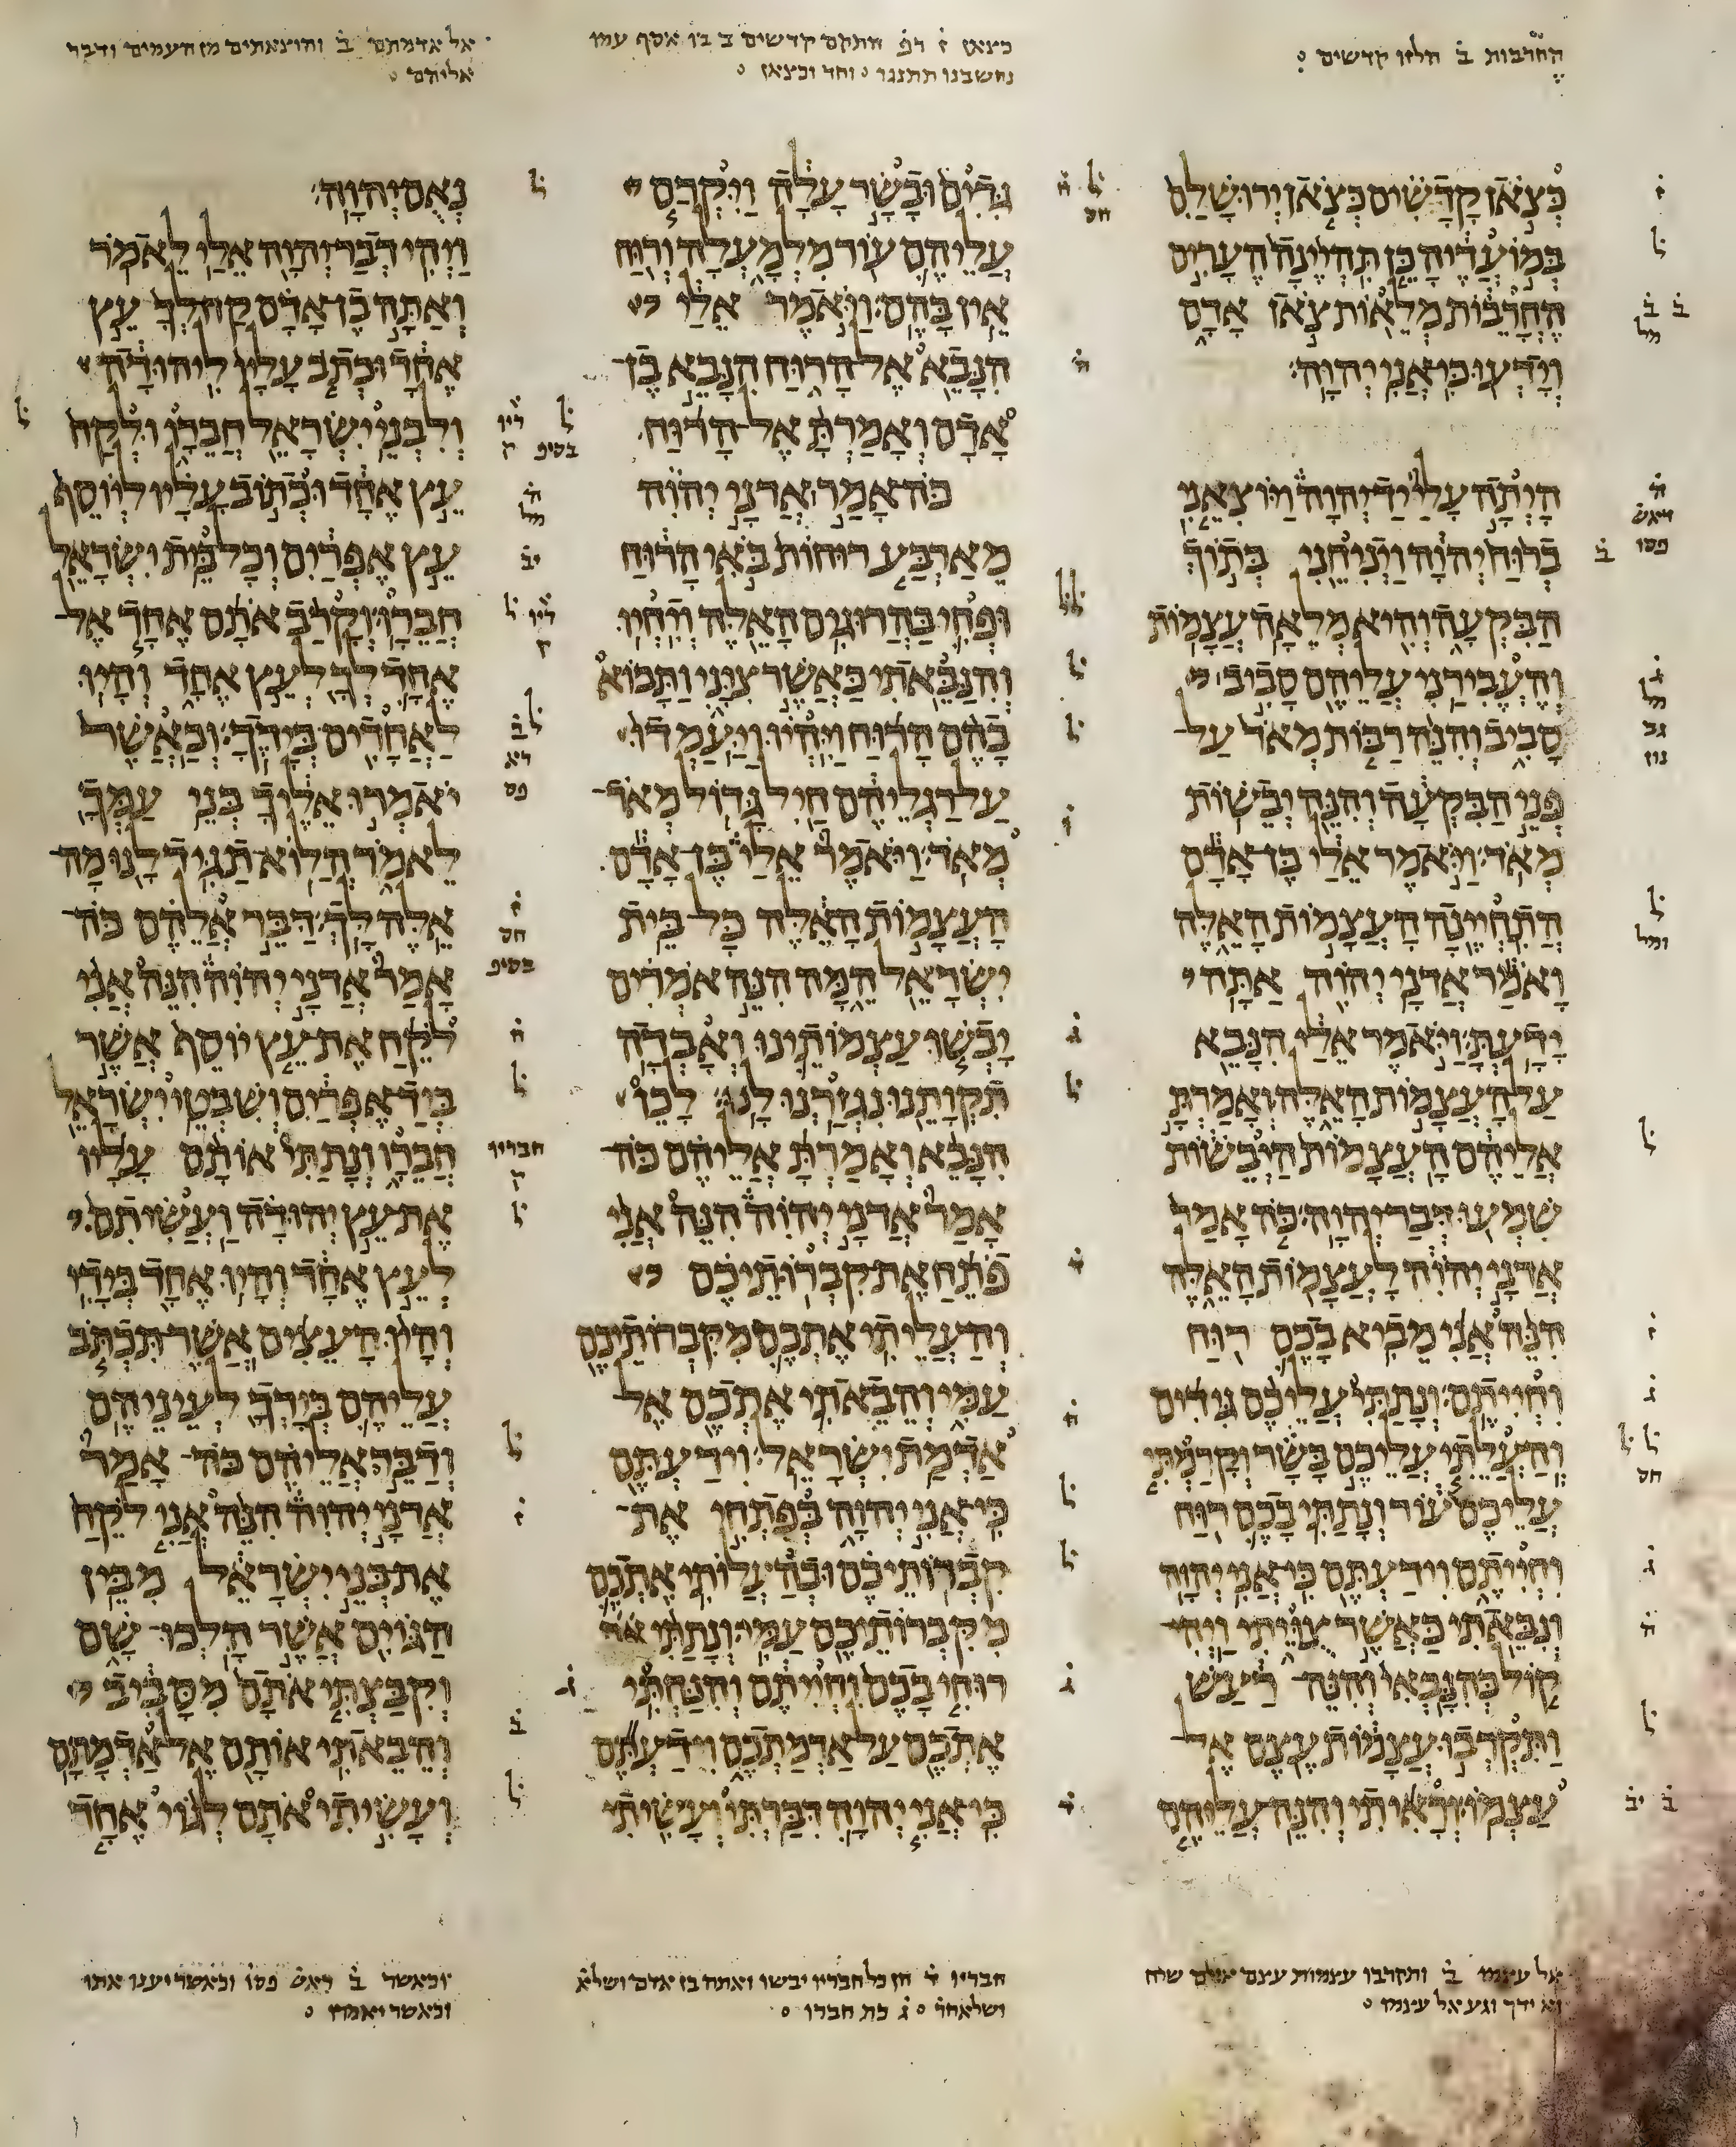 החרבות ב חלזו קדשים
כצאן קדשים כצאן ירושלם
במועדיה כן תהיינה הערים
החרבות מלאות צאן אדם
וידעו כי אני יהוה
היתה עלי יד יהוה ויוצאני
ברוח יהוה ויניחני בתוך
הבקעה והיא מלאה עצמות
והעבירני עליהם סביב
סביב והנה רבות מאד על
פני הבקעה והנה יבשות
מאד ויאמר אלי בן אדם
התחיינה העצמות האלה
ואמר אדני יהוה אתה
ידעת ויאמר אלי הנבא
על העצמות האלה ואמרת
אליהם העצמות היבשות
שמעו דבר יהוה כה אמר
אדני יהוה לעצמות האלה
הנה אני מביא בכם רוח
וחייתם ונתתי עליכם גידים
והעלתי עליכם בשר וקרמתי
עליכם עור ונתתי בכם רוח
וחייתם וידעתם כי אני יהוה
ונבאתי כאשר צויתי ויהי
קול כהנבאי והנה רעש
ותקרבו עצמות עצם אל
עצמו וראיתי והנה עליהם
כצאן ז
נחשבנו
גדים ובשר עלה ויקרם
עליהם עור מלמעלה ורוח
אין בהם ויאמר אלי
הנבא אל הרוח הנבא בן
אדם ואמרת אל הרוח
כה אמר אדני יהוה
מארבע רוחות באי הרוח
ופחי בהרוגים האלה ויחיו
והנבאתי כאשר צוני ותבוא
בהם הרוח ויחיו ויעמדו
על רגליהם חיל גדול מאד
מאד ויאמר אלי בן אדם
העצמות האלה כל בית
ישראל המה הנה אמרים
יבשו עצמותינו ואבדה
תקותנו נגזרנו לנו לכן
הנבא ואמרת אליהם כה
אמר אדני יהוה הנה אני
פתח את קברותיכם
והעליתי אתכם מקברותיכם
עמי והבאתי אתכם אל
אדמת ישראל וידעתם
כי אני יהוה בפתחי את
קברותיכם ובהעלותי אתכם
מקברותיכם עמי ונתתי
רוחי בכם וחייתם והנחתי
אתכם על אדמתכם וידעתם
כי אני יהוה דברתי ועשיתי
אל אדמתם ב והוצאתים מן העמים ודבר
אליהם
נאם יהוה
ויהי דבר יהוה אלי לאמר
ואתה בן אדם קח לך עץ
אחד וכתב עליו ליהודה
ולבני ישראל חברו ולקח
עץ אחד וכתוב עליו ליוסף
עץ אפרים וכל בית ישראל
חברו וקרב אתם אחד אל
אחד לך לעץ אחד והיו
לאחדים בידך וכאשר
יאמרו אליך בני עמך
לאמר הלוא תגיד לנו מה
אלה לך דבר אלהם כה
אמר אדני יהוה הנה אני
לקח את עץ יוסף אשר
ביד אפרים ושבטי ישראל
חברו ונתתי אותם עליו
את עץ יהודה ועשיתם
לעץ אחד והיו אחד בידי
והיו העצים אשר תכתב
עליהם בידך לעיניהם
ודבר אליהם כה אמר
אדני יהוה הנה אני לקח
את בני ישראל מבין
הגוים אשר הלכו שם
וקבצתי אתם מסביב
והבאתי אותם אל אדמתם
ועשיתי אתם לגוי אחד
אל עצמו ב ותקרבו עצמות עצם
חבריו ד הן כל חבריו יבשו ואתה בן אדם
וכאשר ב ראש פסו וכאשר יענו אתו
וכאשר יאמרו